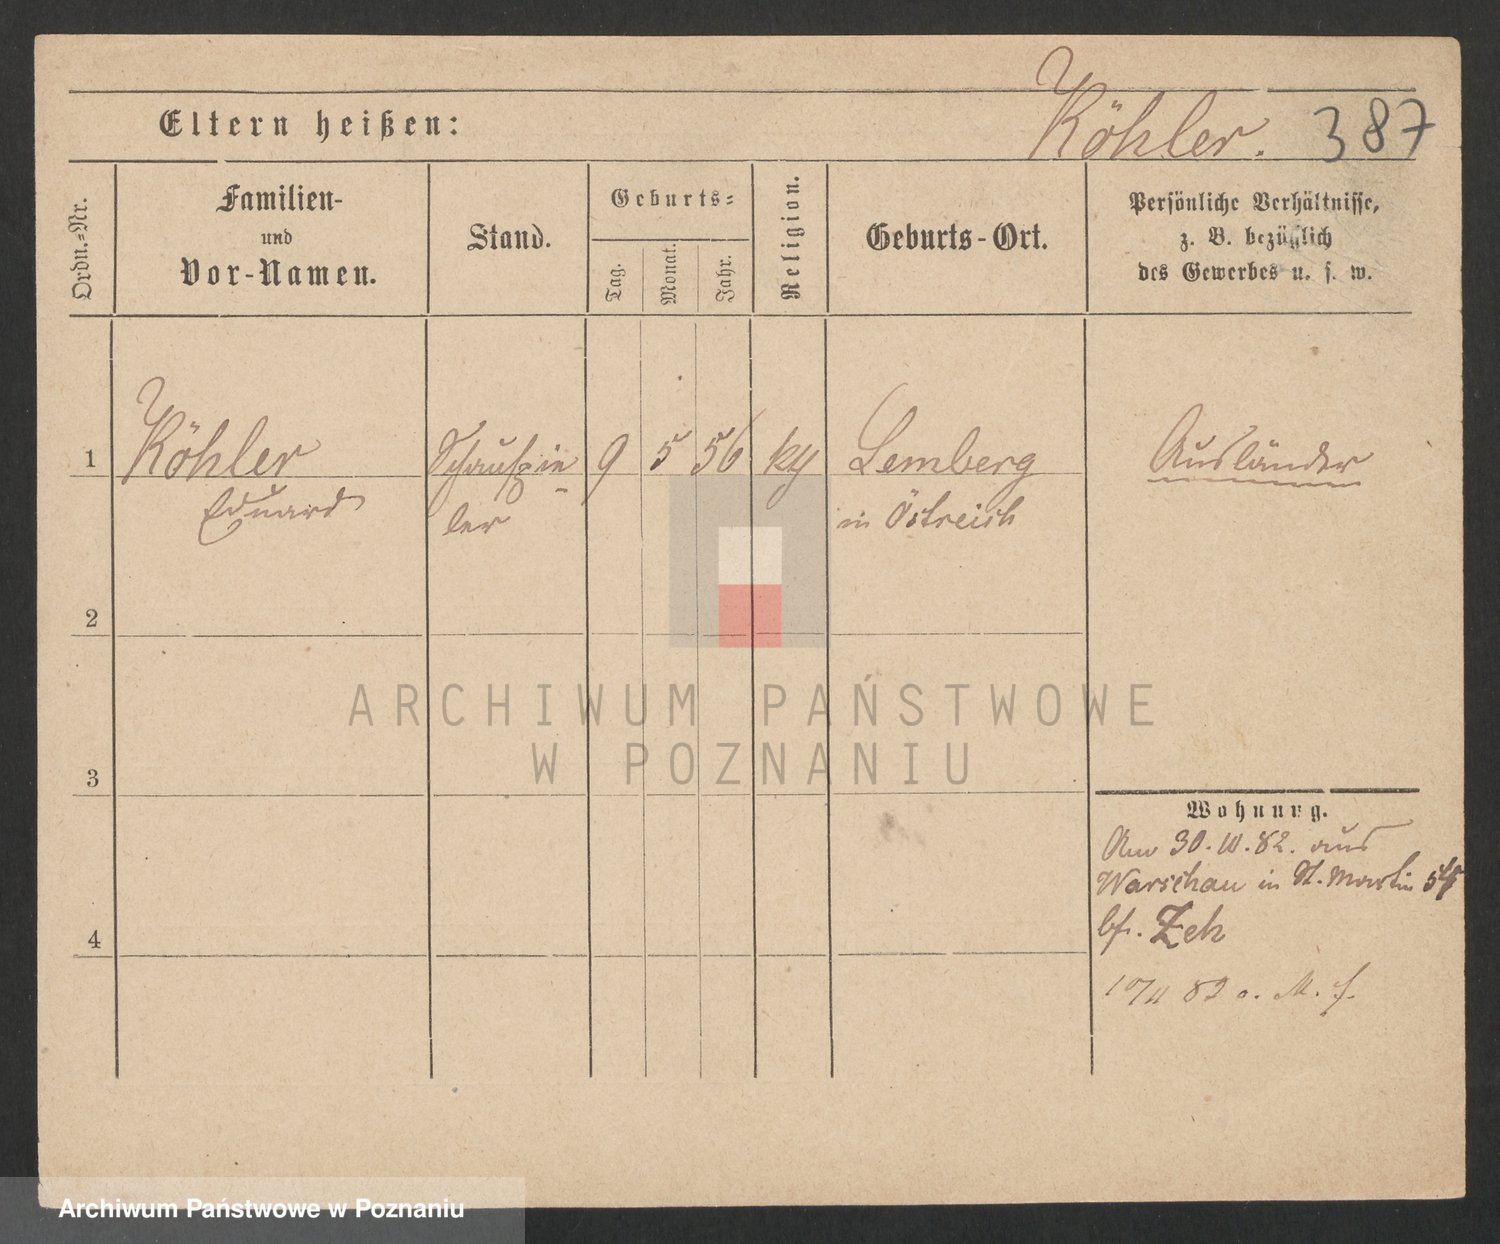 Eltern heißen:
Köhler. 387
Ordn.-Nr.
Familien-
und
Vor-Namen.
Stand.
Geburts-
Tag.
Monat.
Jahr.
Religion.
Geburts-Ort.
Persönliche Verhältnisse,
z. B. bezüglich
des Gewerbes u. s. w.
1 Köhler Schauspie- 9 5 56 kg Lemberg Ausländer
Eduard ler in Östreich
2
3
4
Wohnung.
Am 30. 10. 82. aus
Warschau in St. Martin
bf. Zeh
82 o. M. f.
ARCHIWUM PAŃSTWOWE
W POZNANIU
Archiwum Państwowe w Poznaniu